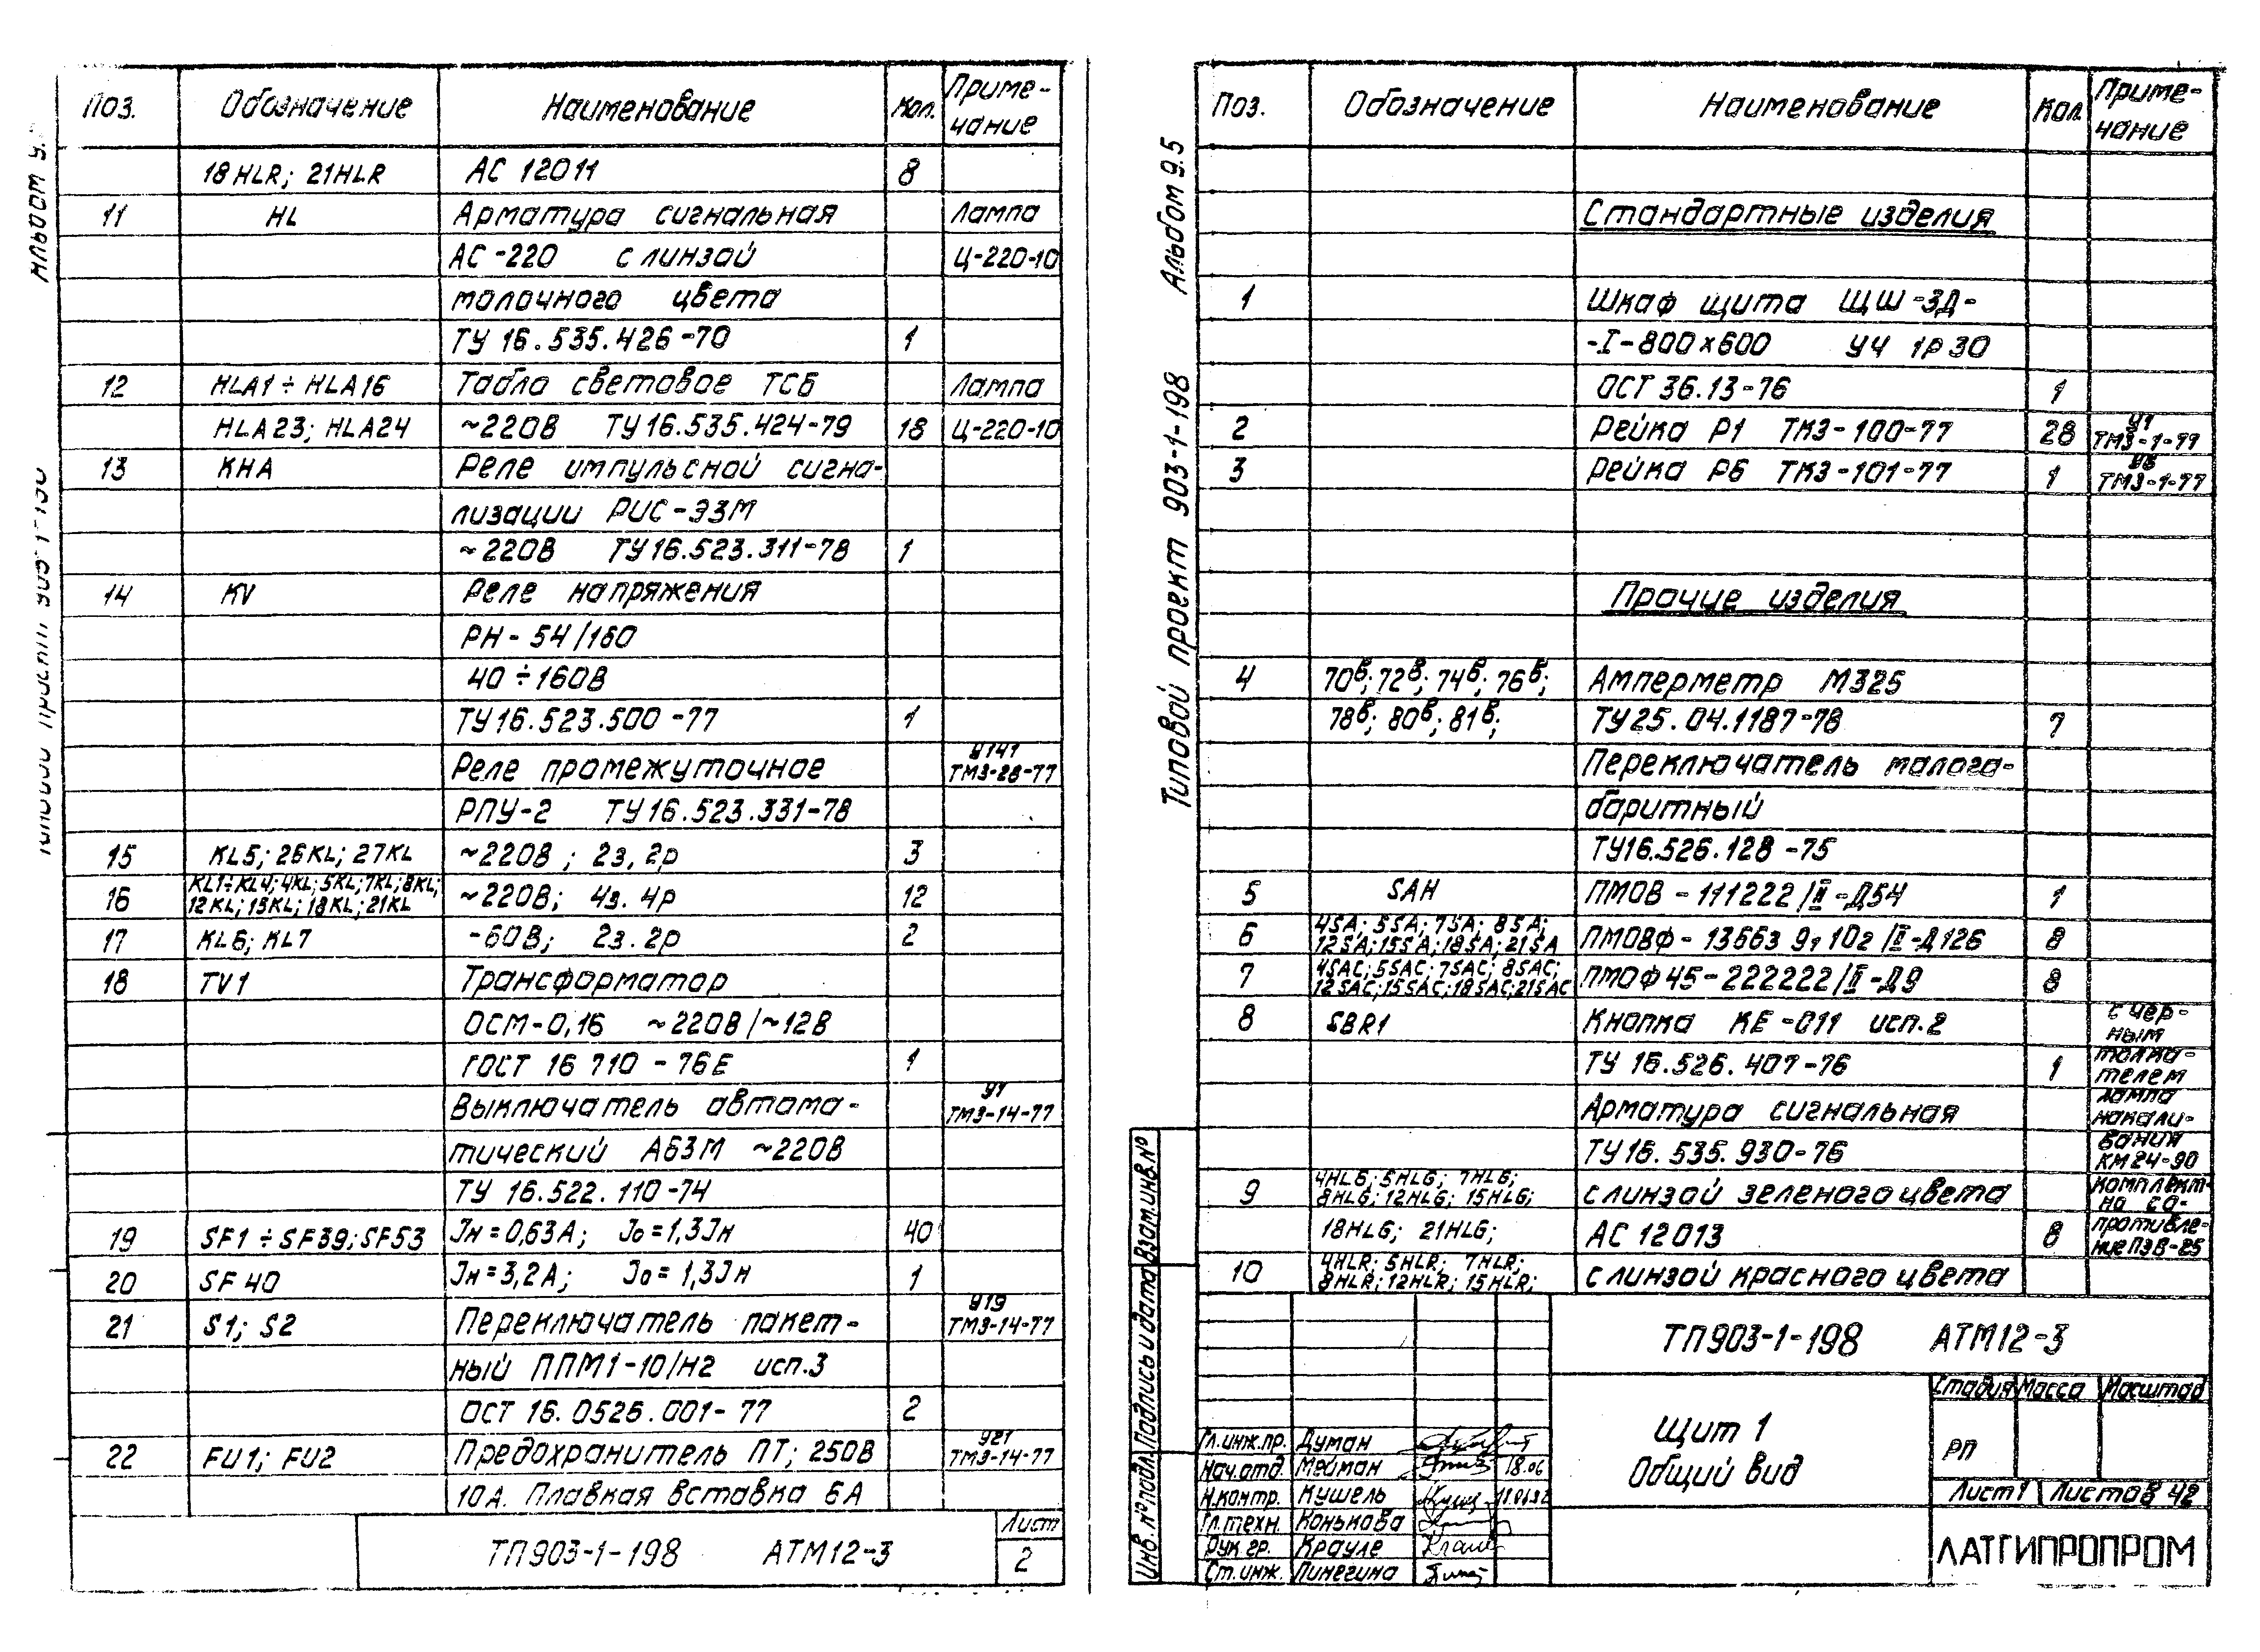 Поз. Обозначение Наименование Кол. Приме-
чание
18HLR; 21HLR АС 12011 8
11 HL Арматура сигнальная Лампа
АС-220 с линзой Ц-220-10
молочного цвета
ТУ 16.535.426-70 1
12 HLA1÷HLA16 Табло световое ТСБ Лампа
HLA23; HLA24 ~220В ТУ16.535.424-79 18 Ц-220-10
13 КНА Реле импульсной сигна-
лизации РИС-ЭЗМ
~220В ТУ16.523.311-78 1
14 KV Реле напряжения
РН-54/160
40÷160В
ТУ16.523.500-77 1
Реле промежуточное У141
ТМ3-28-77
РПУ-2 ТУ16.523.331-78
15 KL5; 26KL; 27KL ~220В; 2з, 2р 3
16 KL1÷KL4; 4KL; 5KL; 7KL; 8KL;
12KL; 15KL; 18KL; 21KL ~220В; 4з. 4р 12
17 KL6; KL7 -60В; 2з. 2р 2
18 TV1 Трансформатор
ОСМ-0,16 ~220В/~12В
ГОСТ 16 710-76Е 1
Выключатель автома- У1
ТМ3-14-77
тический А63М ~220В
ТУ 16.522.110-74
19 SF1÷SF39; SF53 Jн=0,63А; Jо=1,3Jн 40
20 SF40 Jн=3,2А; Jо=1,3Jн 1
21 S1; S2 Переключатель пакет- У19
ТМ3-14-77
ный ППМ1-10/Н2 исп.3
ОСТ 16.0526.001-77 2
22 FU1; FU2 Предохранитель ПТ; 250В У21
ТМ3-14-77
10А. Плавкая вставка 6А
ТП903-1-198 АТМ12-3 Лист
2
Альбом 9.5
Типовой проект 903-1-198
Поз. Обозначение Наименование Кол. Приме-
чание
Стандартные изделия
1 Шкаф щита ЩШ-ЗД-
-I-800х600 У4 1Р30
ОСТ 36.13-76 1
2 Рейка Р1 ТК3-100-77 28 У1
ТМ3-1-77
3 Рейка Р6 ТК3-101-77 1 У6
ТМ3-1-77
Прочие изделия
4 70в; 72в; 74в; 76в; Амперметр М325
78в; 80в; 81в; ТУ25.04.1187-78 7
Переключатель малога-
баритный
ТУ16.526.128-75
5 SAH ПМОВ-111222/II-Д54 1
6 4SA; 5SA; 7SA; 8SA;
12SA; 15SA; 18SA; 21SA ПМОВФ-1366з 9, 10г/II-Д126 8
7 4SAC; 5SAC; 7SAC; 8SAC;
12SAC; 15SAC; 18SAC; 21SAC ПМОФ45-222222/II-Д9 8
8 SBR1 Кнопка КЕ-011 исп.2 с чер-
ным
ТУ 16.526.407-76 1 толка-
телем
Арматура сигнальная лампа
накали-
ТУ16.535.930-76 вания
КМ24-90
9 4HLG; 5HLG; 7HLG;
8HLG; 12HLG; 15HLG; с линзой зеленого цвета комплект-
но со-
18HLG; 21HLG; АС 12013 8 противле-
ние ПЭВ-25
10 4HLR; 5HLR; 7HLR;
8HLR; 12HLR; 15HLR; с линзой красного цвета
Инв. № подл. Подпись и дата Взам. инв. №
ТП903-1-198 АТМ12-3
Щит 1
Общий вид
Стадия Масса Масштаб
РП
Лист 1 Листов 42
ЛАТГИПРОПРОМ
Гл. инж. пр. Думан
Нач. отд. Мейман 18.06
Н. контр. Кушель
Гл. техн. Конькова
Рук гр. Крауле
Ст. инж. Пинегина